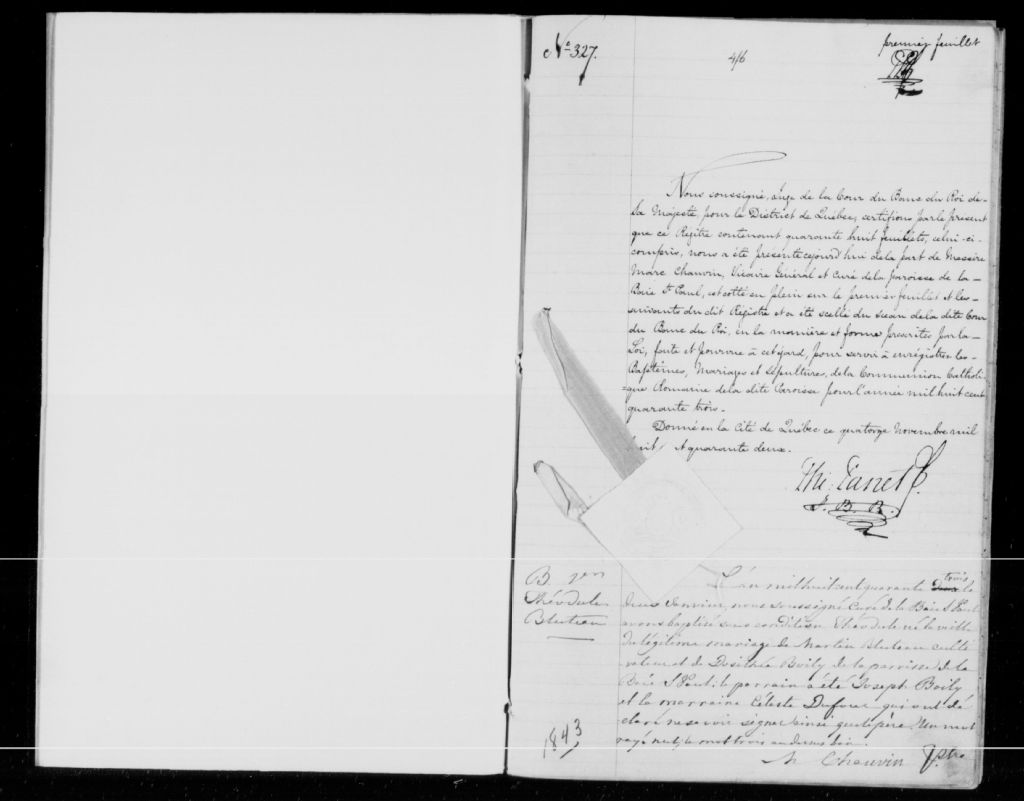 No 327.
4/6
premier feuillet
Nous soussigné, juge de la Cour du Banc du Roi de
Sa Majesté, pour le District de Québec, certifions par le présent
que ce Régitre contenant quarante huit feuillets, celui-ci-
compris, nous a été présenté cejourd'hui de la part de Messire
Marc Chauvin, Vicaire Général et Curé de la paroisse de la-
Baie St Paul, est cotté en plein sur le premier feuillet et les-
suivants du dit Régistre et a été scellé du sceau de la dite Cour
du Banc du Roi, en la manière et forme prescrites par la-
Loi, faite et pourvue à cet égard, pour servir à enrégistrer les-
Baptêmes, Mariages et Sépultures, de la Communion Catholi-
=que Romaine de la dite Paroisse pour l'année mil huit cent
quarante trois.
Donné en la Cité de Québec ce quatorze Novembre mil
huit et quarante deux.
J. B. R.
B. 1er
Théodule
Bluteau
L'an mil huit cent quarante deux trois le
deux Janvier, nous soussigné Curé de la Baie St Paul
avons baptisé sous condition Théodule né la veille
du légitime mariage de Martin Bluteau culti
vateur et de Dosithée Boily de la paroisse de la
Baie St Paul: le parrain a été Joseph Boily
et la marraine Céleste Dufour qui ont dé
claré ne savoir signer ainsi que le père. Un mot
rayé nul, le mot trois au dessus bon.
M Chauvin Ptre
1843